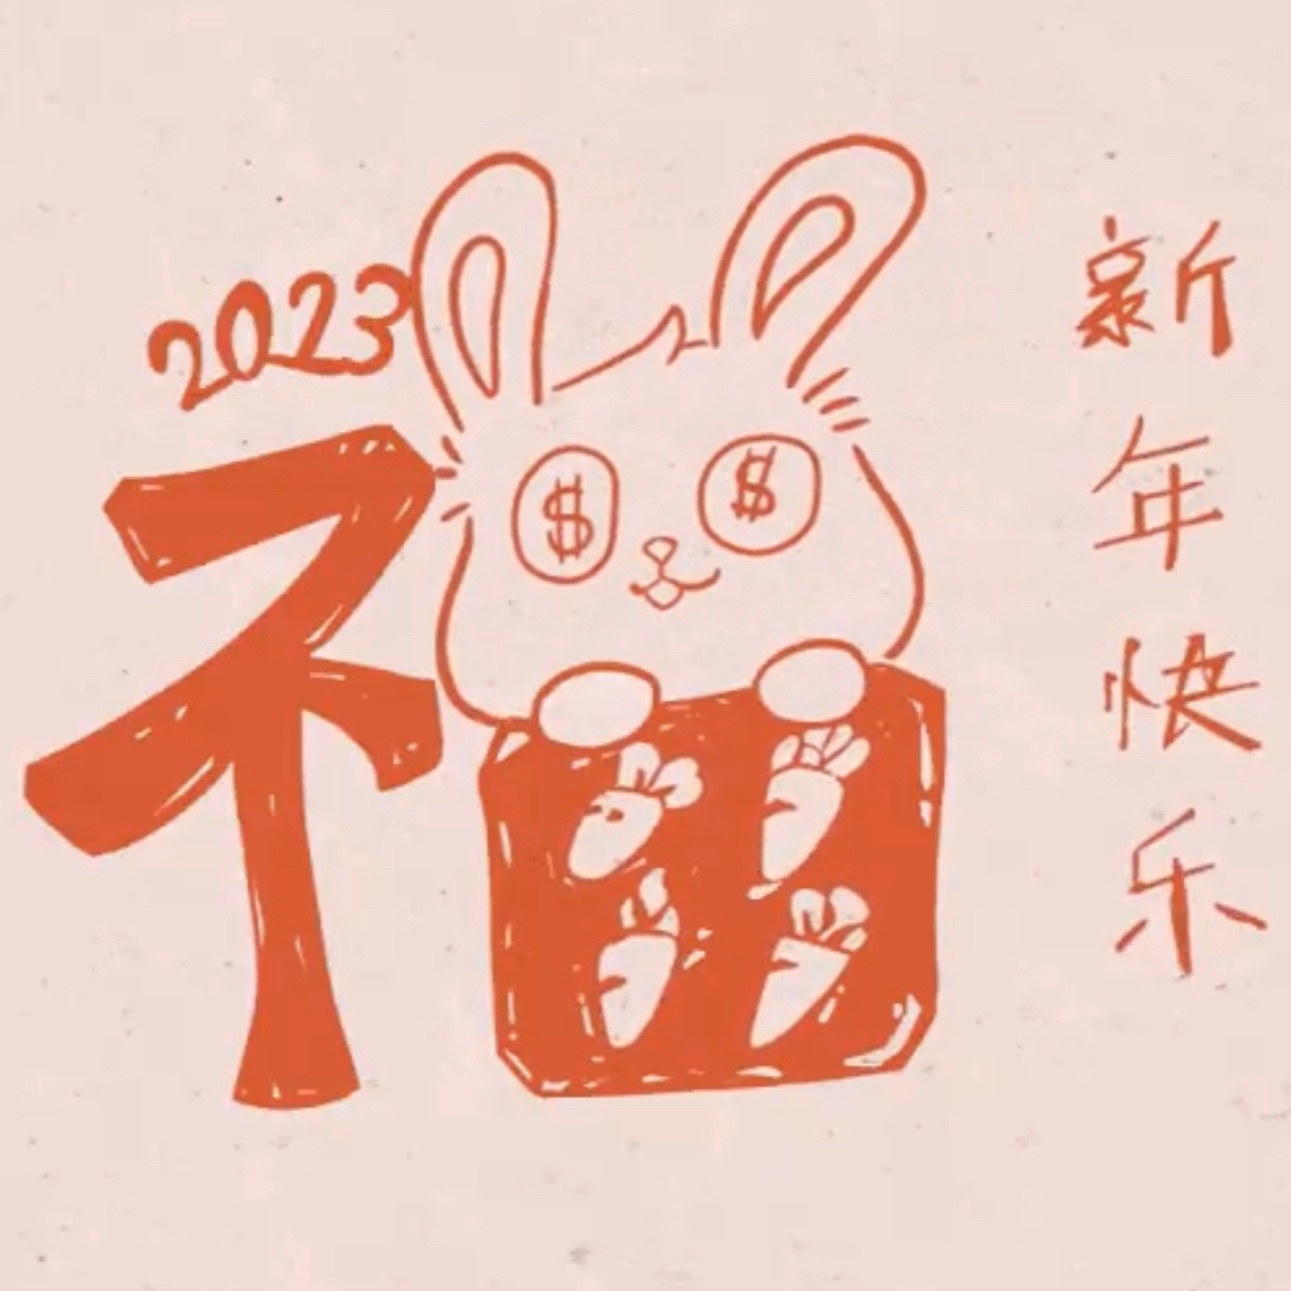 2023
福
$ $
新年快乐